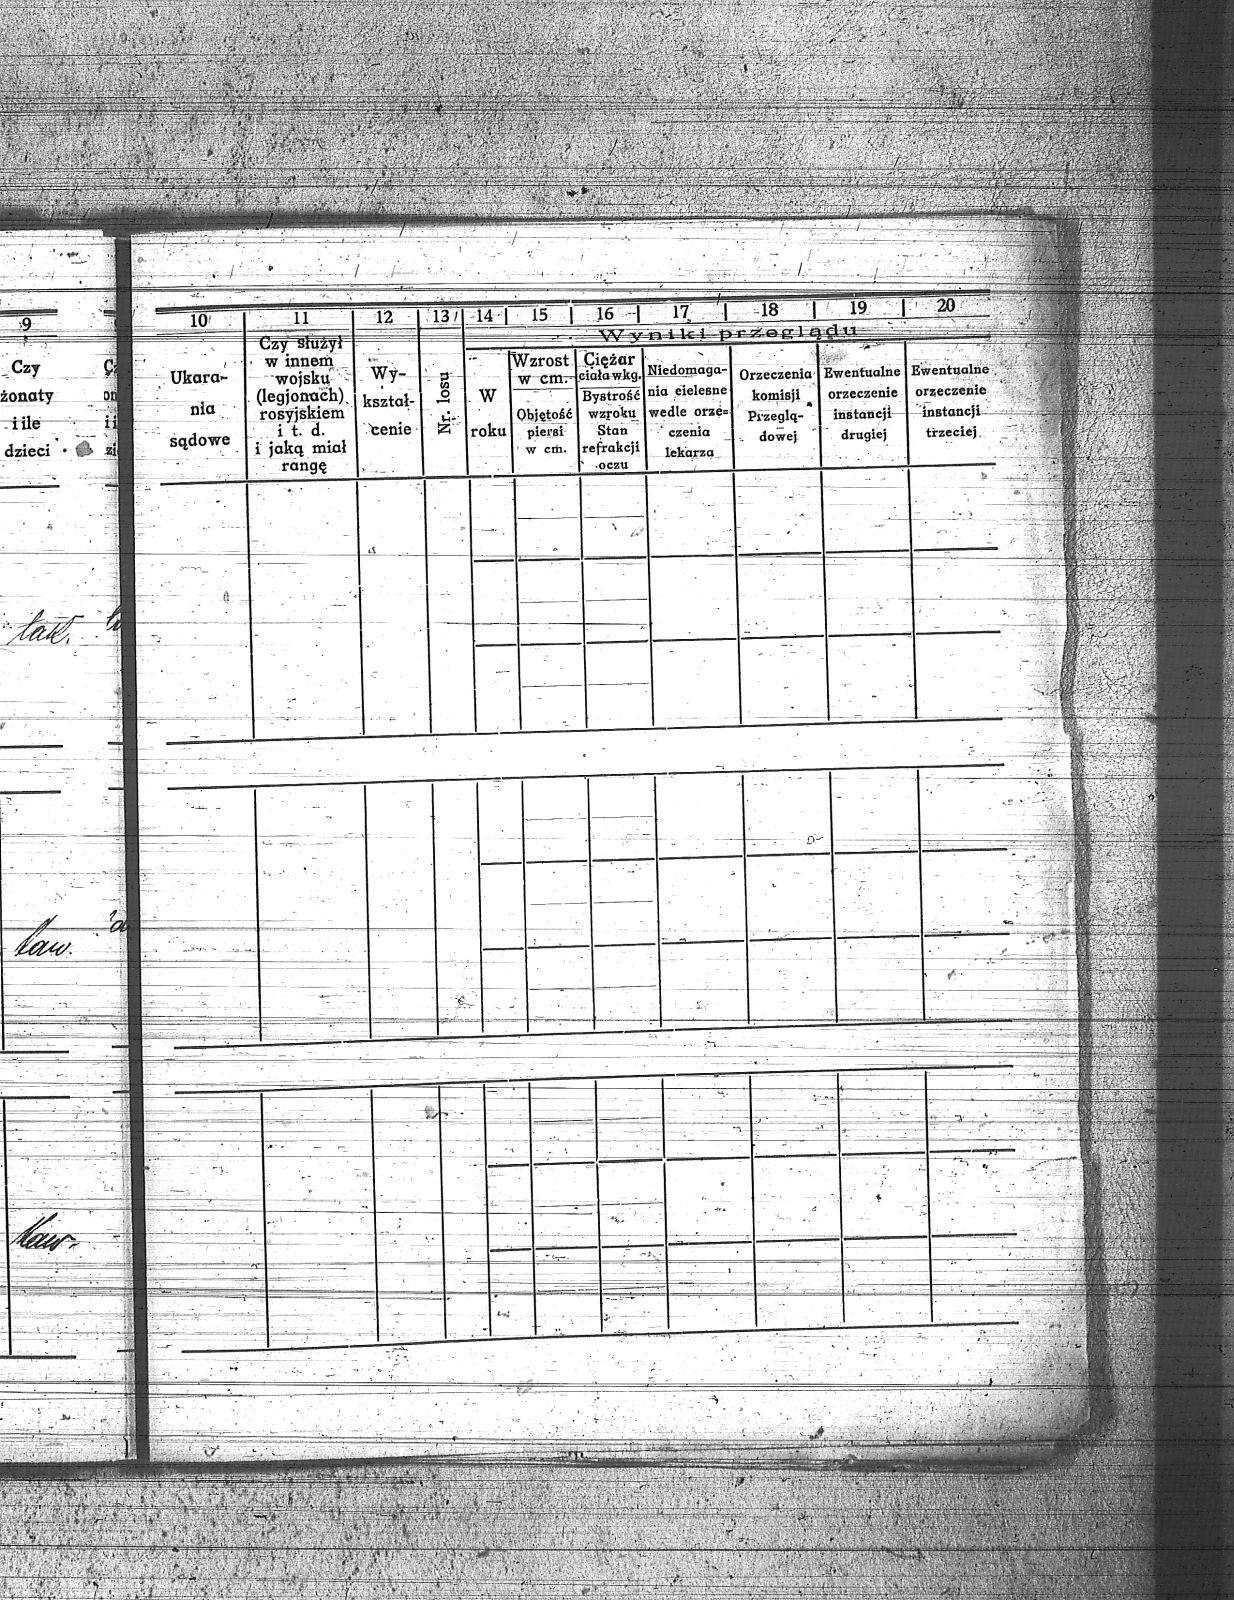 9
Czy
żonaty
i ile
dzieci
10
Ukara-
nia
sądowe
11
Czy służył
w innem
wojsku
(legjonach)
rosyjskiem
i t. d.
i jaką miał
rangę
12
Wy-
kształ-
cenie
13
Nr. losu
Wyniki przeglądu
14
W
roku
15
Wzrost
w cm.
Objętość
piersi
w cm.
16
Ciężar
ciała w kg.
Bystrość
wzroku
Stan
refrakcji
oczu
17
Niedomaga-
nia cielesne
wedle orze-
czenia
lekarza
18
Orzeczenia
komisji
Przeglą-
dowej
19
Ewentualne
orzeczenie
instancji
drugiej
20
Ewentualne
orzeczenie
instancji
trzeciej